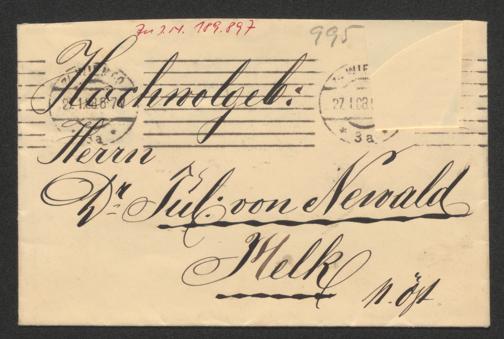 Zu I.N. 189.897
995
Hochwolgeb:
Herrn
Dr. Jul: von Newald
Melk
N. Öst
3a
27.I.08
* 3a *